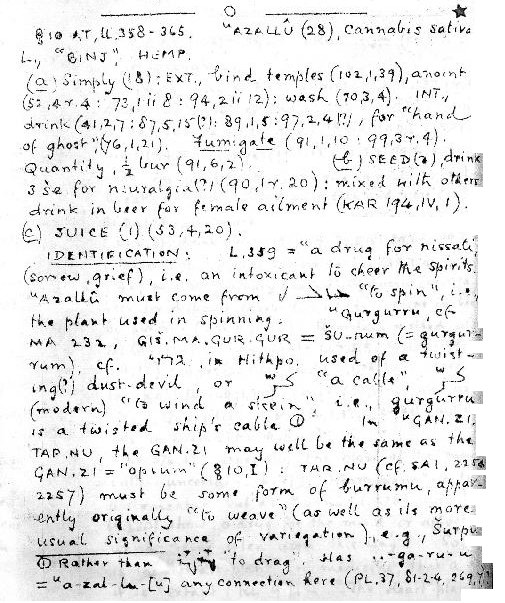 §10 AT, ll. 358-365. ᵁAZALLÛ (28), Cannabis sativa
L., "BINJ", HEMP.
(a) Simply (18): EXT., bind temples (102,1,39), anoint
(52,4 r.4: 73,1 ii 8: 94,2 ii 12): wash (70,3,4). INT.,
drink (41,2,7: 87,5,15(?): 89,1,5: 97,2,4(?)), for "hand
of ghost" (76,1,21). Fumigate (91,1,10: 99,3 r.4).
Quantity, ½ bur (91,6,2). (b) SEED (2), drink
3 še for neuralgia(?) (90,1 r. 20): mixed with others
drink in beer for female ailment (KAR 194, IV, 1).
(c) JUICE (1) (53,4,20).
IDENTIFICATION: L. 359 = "a drug for nissati,
(sorrow, grief), i.e. an intoxicant to cheer the spirits.
ᵁAzallû must come from √ "to spin", i.e.,
the plant used in spinning. ᵁGurgurru, cf.
MA 232, GIŠ.MA.GUR.GUR = ŠU-rum (= gurgur-
rum), cf. in Hithpo. used of a twist-
ing(?) dust-devil, or "a cable",
(modern) "to wind a skein", i.e., gurgurru
is a twisted ship's cable ① In ᵁGAN.ZI.
TAR.NU, the GAN.ZI may well be the same as the
GAN.ZI = "opium" (§10, I): TAR.NU (cf. SAI, 2256
2257) must be some form of burrumu, appar-
ently originally "to weave" (as well as its more
usual significance of variegation), e.g., Šurpu
① Rather than "to drag". Has ..-ga-ru-u
= ᵁa-zal-lu-[u] any connection here (PL.37, 81-2-4, 269,